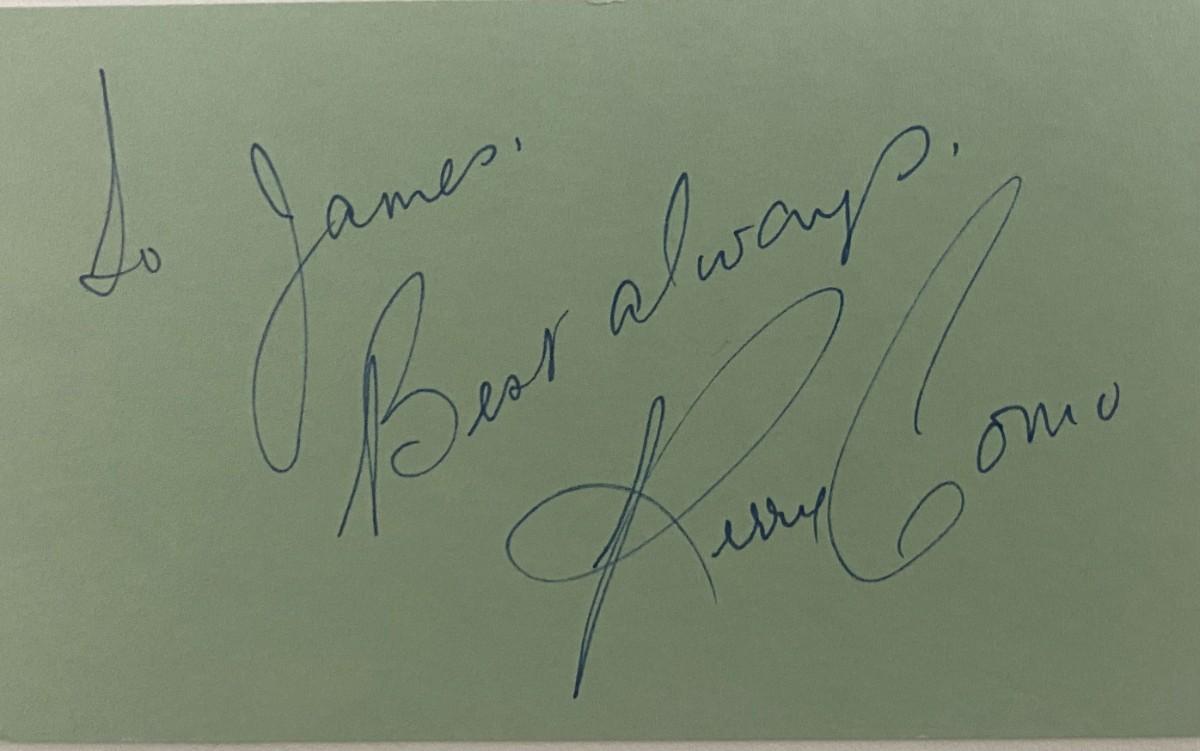 To James,
Best always.
Perry Como